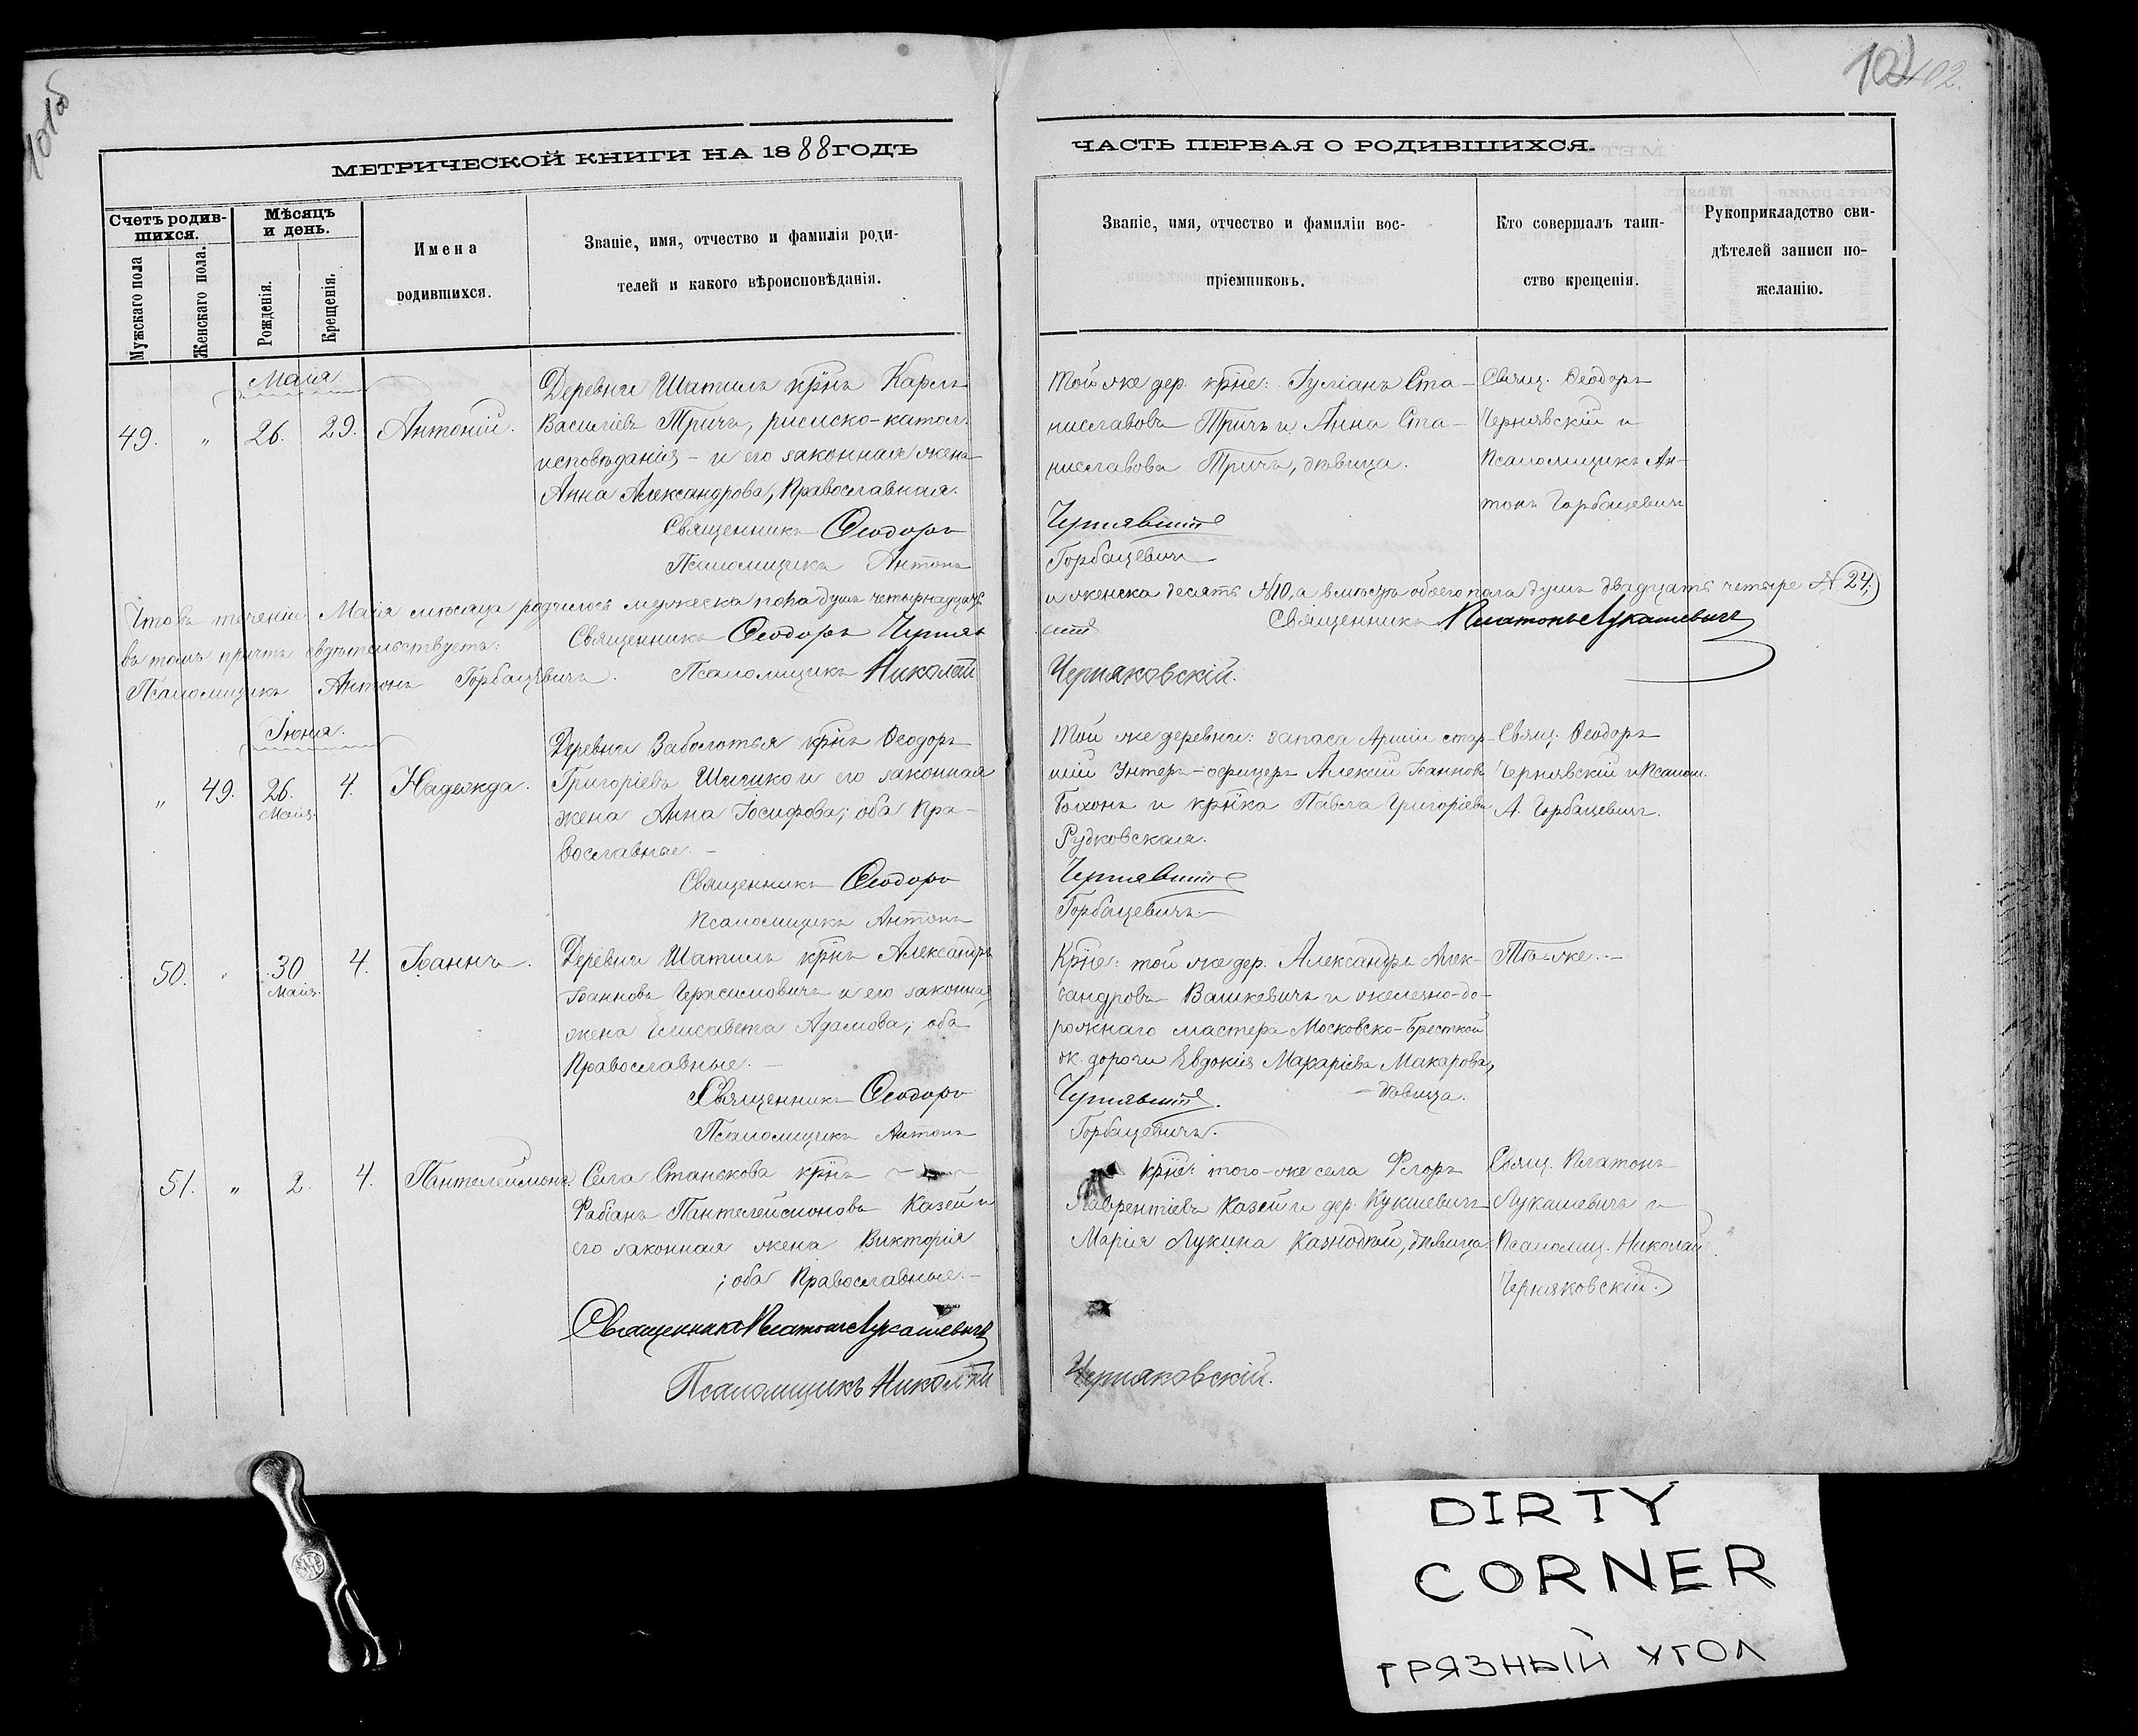 101об
101 102.
МЕТРИЧЕСКОЙ КНИГИ НА 1888 ГОДЪ
ЧАСТЬ ПЕРВАЯ О РОДИВШИХСЯ.
Счетъ родив-
шихся.
Мужскаго пола
Женскаго пола.
Мѣсяцъ
и день.
Рожденія.
Крещенія.
Имена
родившихся.
Званіе, имя, отчество и фамилія роди-
телей и какого вѣроисповѣданія.
Званіе, имя, отчество и фамиліи вос-
пріемниковъ.
Кто совершалъ таин-
ство крещенія.
Рукоприкладство сви-
дѣтелей записи по-
желанію.
Маія
49. " 26. 29. Антоній.
Деревни Шатилъ крнъ Карлъ
Василіевъ Тричъ, римско-катол.
исповѣданія - и его законная жена
Анна Александрова, Православная.
Священникъ Ѳеодоръ
Псаломщикъ Антонъ
Той же дер. крне: Іуліанъ Ста-
ниславовъ Тричъ и Анна Ста-
ниславова Тричъ, дѣвица.
Чернявскій
Горбацевичъ
Свящ. Ѳеодоръ
Чернявскій и
Псаломщикъ Ан-
тонъ Горбацевичъ
Что въ теченіи Маія мѣсяца родилось мужеска пола душъ четырнадцать
и женска десять №10, а вмѣстѣ обоего пола душъ двадцать четыре № 24.)
въ томъ причтъ свидѣтельствуетъ: Священникъ Ѳеодоръ Черняв
скій Священникъ Платонъ Лукашевичъ
Псаломщикъ Антонъ Горбацевичъ. Псаломщикъ Николай
Черняковскій.
Іюня.
" 49. 26. Маія. 4. Надежда.
Деревни Заболотья крнъ Ѳеодоръ
Григоріевъ и его законная
жена Анна Іосифова; оба Пра-
вославные. -
Священникъ Ѳеодоръ
Псаломщикъ Антонъ
Той же деревни: запаса Арміи стар-
шій Унтеръ-офицеръ Алексій Іоанновъ
и крнка Павла Григоріева
Рудковская.
Чернявскій
Горбацевичъ.
Свящ. Ѳеодоръ
Чернявскій и Псалом.
А. Горбацевичъ.
50. " 30 Маія. 4. Іоаннъ.
Деревни Шатилъ крнъ Александръ
Іоанновъ Герасимовичъ и его законная
жена Елисавета Адамова; оба
Православные. -
Священникъ Ѳеодоръ
Псаломщикъ Антонъ
Крне: той же дер. Александръ Алек-
сандровъ Вашкевичъ и желѣзно-до-
рожнаго мастера Московско-Брестской
ж. дороги Евдокія Макаріева Макарова,
- дѣвица.
Чернявскій.
Горбацевичъ.
Тѣ-же. -
51. " 2. 4. Пантелеймонъ.
Села Станькова крнъ
Фабіанъ Пантелеймоновъ Казей и
его законная жена Викторія
; оба Православные. -
Священникъ Платонъ Лукашевичъ
Псаломщикъ Николай
Крне: того-же села Ѳедоръ
Лаврентіевъ Казей и дер. Кукшевичъ
Марія Лукина Казнодѣй, дѣвица.
Черняковскій.
Свящ. Платонъ
Лукашевичъ и
Псаломщ. Николай
Черняковскій.
DIRTY
CORNER
ГРЯЗНЫЙ УГОЛ